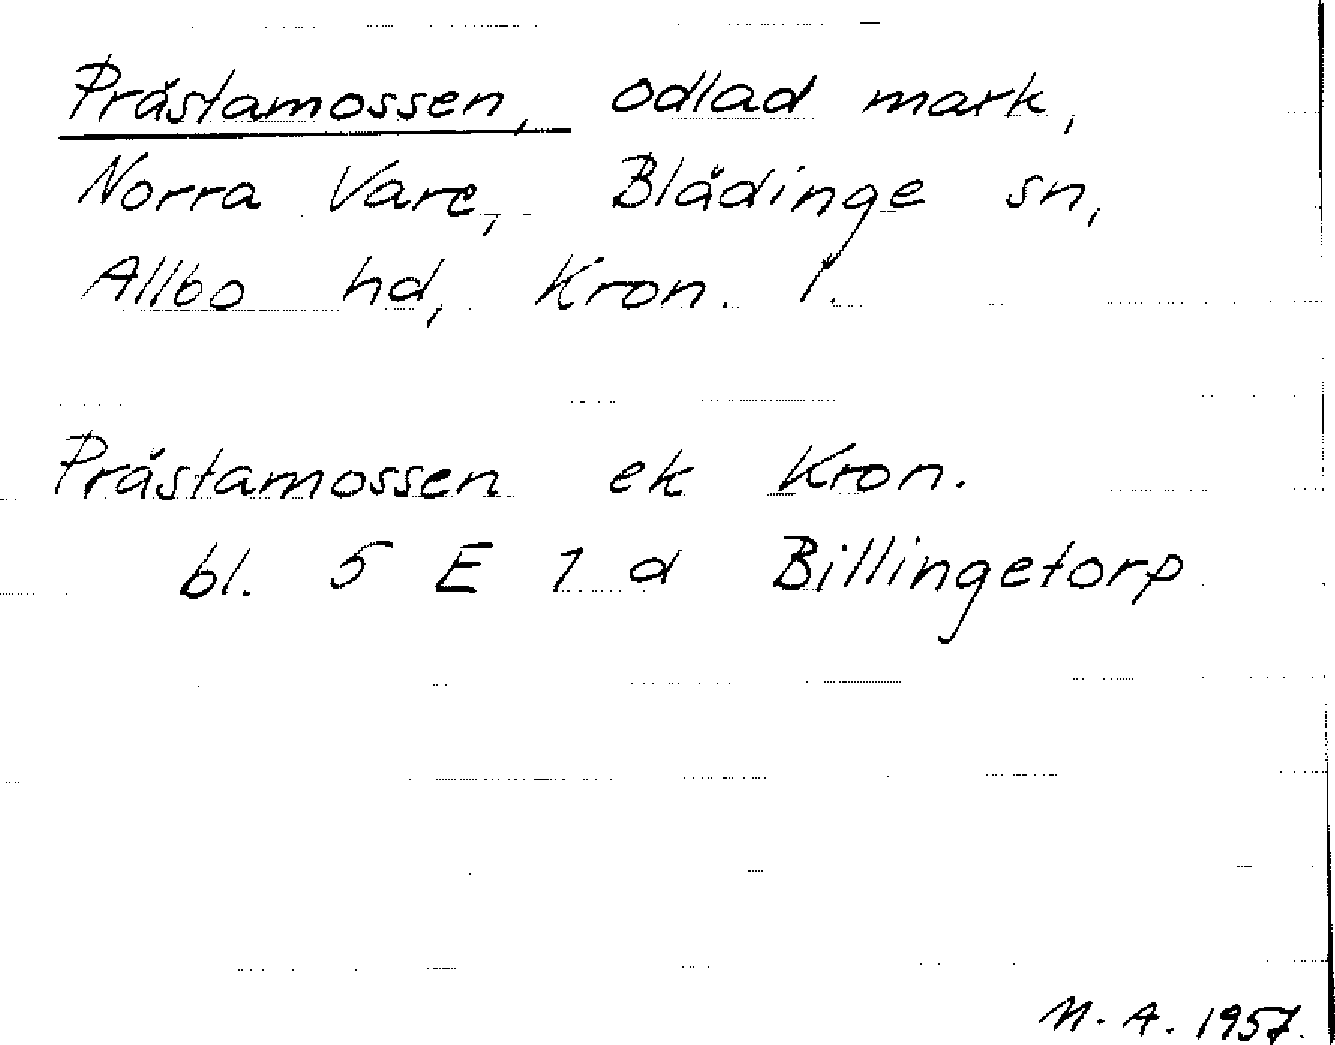 Prästamossen, odlad mark,
Norra Vare, Blädinge sn,
Allbo hd, Kron. l.
Prästamossen ek Kron.
bl. 5 E 1 d Billingetorp
M. A. 1957.